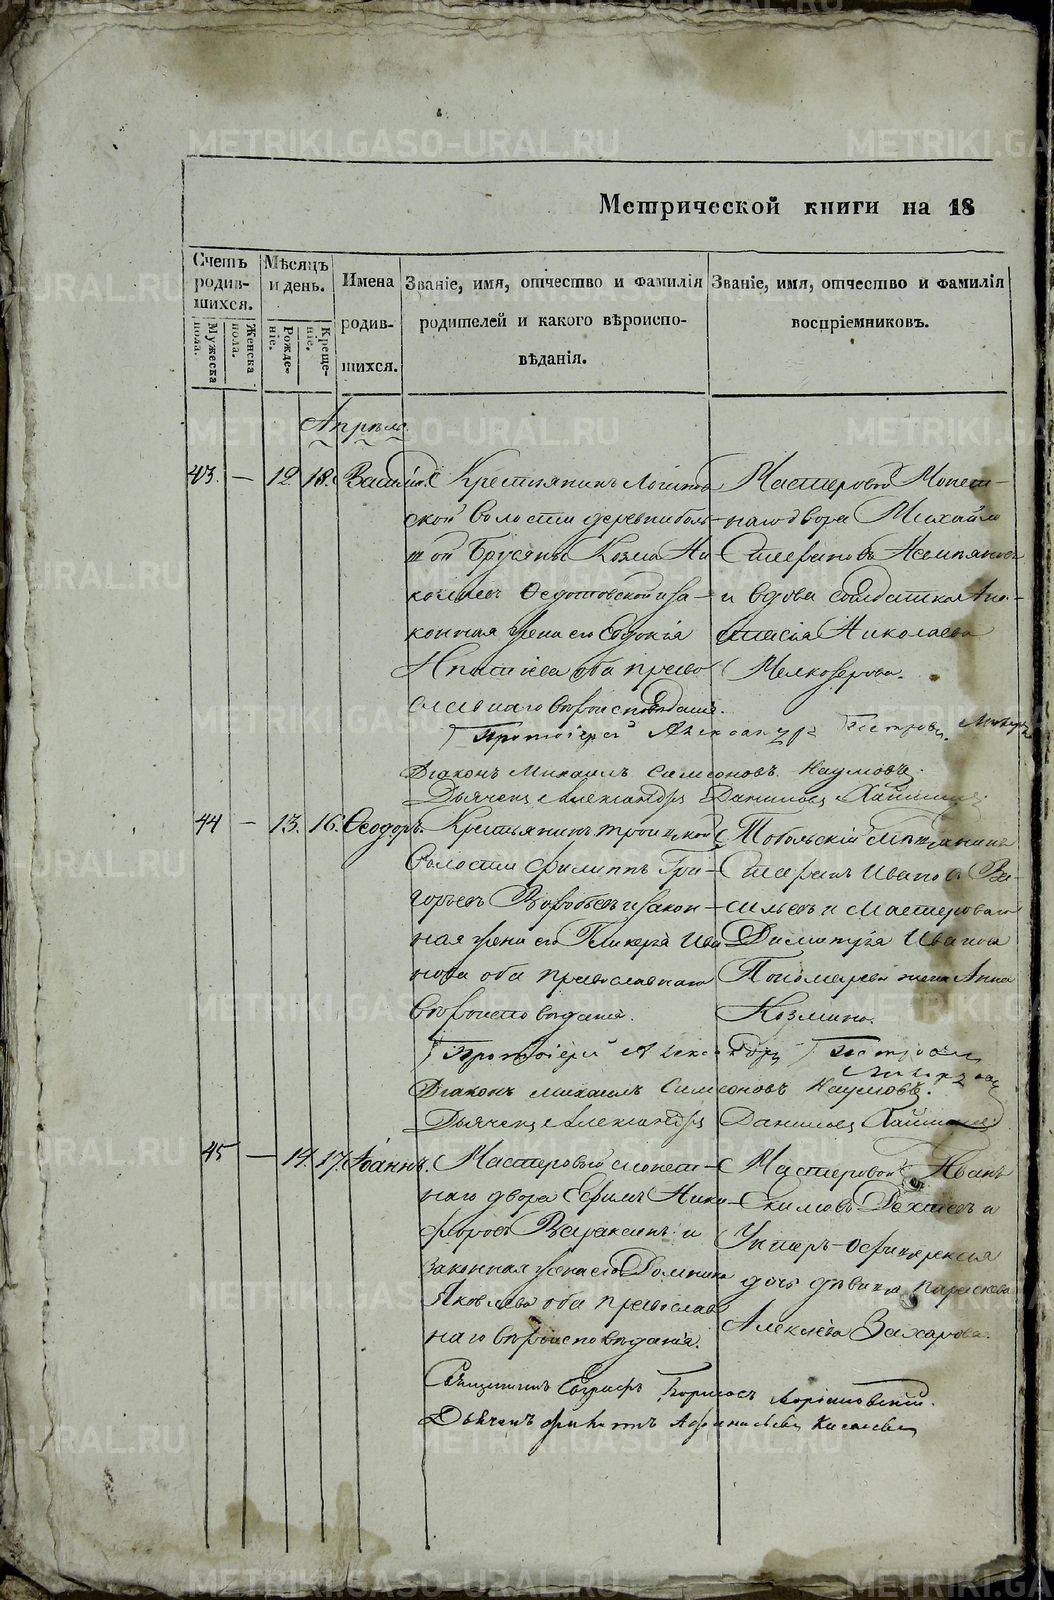 METRIKI.GASO-URAL.RU
Метрической книги на 18
Счетъ родившихся.
Мужеска пола.
Женска пола.
Мѣсяцъ и день.
Рожденіе.
Крещеніе.
Имена родившихся.
Званіе, имя, отчество и фамилія родителей и какого вѣроисповѣданія.
Званіе, имя, отчество и фамилія воспріемниковъ.
Апрѣль
43. — 12. 18. Василій.
Крестьянинъ
ской волости деревни Боль-
шой Брусяны Козма Ни-
и за-
конная жена его Евдокія
оба право-
славнаго вѣроисповѣданія.
Мастеровой Монет-
наго двора Михайло
и вдова солдатка Ана-
стасія Николаева
Мелкозерова.
Протоіерей Александръ Петровъ
Діаконъ Михаилъ Симеоновъ Наумовъ.
Дьячекъ Александръ Даниловъ
44 — 13. 16. Ѳеодоръ.
Крестьянинъ Троицкой
волости Филиппъ Гри-
горьевъ Воробьевъ и закон-
ная жена его Гликерія Ива
нова оба православнаго
вѣроисповѣданія.
Тобольскій мѣщанинъ
Стефанъ Ивановъ Ва-
сильевъ и Мастероваго
Димитрія Иванова
Пономарева жена Анна
Козмина.
Протоіерей Александръ Петровъ
Діаконъ Михаилъ Симеоновъ Наумовъ.
Дьячекъ Александръ Даниловъ
45 — 14. 17. Іоаннъ.
Мастеровой монет-
наго двора Ефимъ Ники-
форовъ Вараксинъ и
законная жена его Домника
Яковлева оба православ
наго вѣроисповѣданія.
Мастеровой Иванъ
Екимовъ и
Унтеръ-офицерская
дочь дѣвица Параскева
Алексѣева Захарова.
Священникъ Евграфъ Борисовъ
Дьячекъ